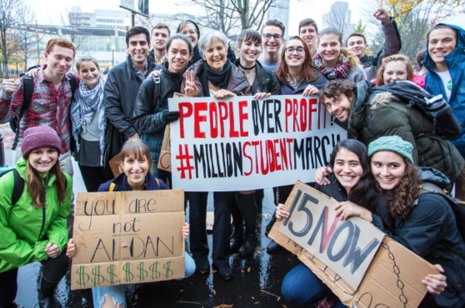 PEOPLE OVER PROFIT!
#MILLIONSTUDENTMARCH
you are
not
AI-DAN
$$$$$$
15 NOW